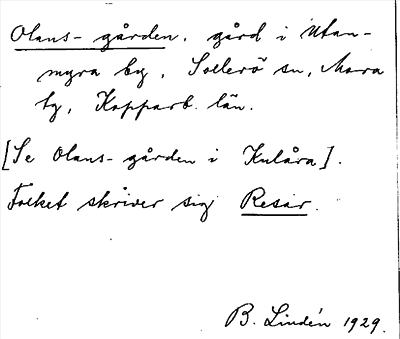 Olans-gården, gård i Utan-
myra by, Sollerö sn, Mora
tg, Kopparb. län.
[Se Olans-gården i Kulåra].
Folket skriver sig Resar.
B. Lindén 1929.